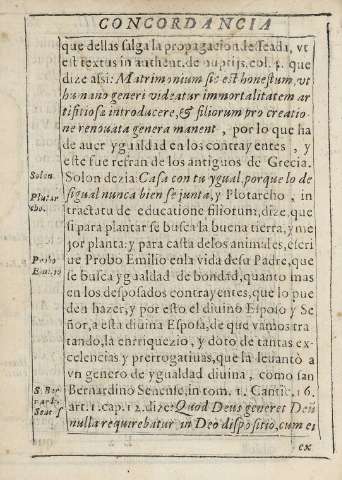 CONCORDANCIA
que dellas salga la propagacion desseada, vt
est textus in authent. de nuptijs. col. 4. que
dize assi: Matrimonium sic est honestum, vt
humano generi videatur immortalitatem ar
tifitiosa introducere, & filiorum pro creatio
ne renouata genera manent, por lo que ha
de auer ygualdad en los contrayentes, y
este fue refran de los antiguos de Grecia.
Solon.
Solon dezia: Casa con tu ygual, porque lo de
sigual nunca bien se junta, y Plotarcho, in
Plutar
cho.
tractatu de educatione filiorum, dize, que
si para plantar se busca la buena tierra, y me
jor planta: y para casta delos animales, escri
Probo
Emilio
ue Probo Emilio enla vida desu Padre, que
se busca ygualdad de bondad, quanto mas
en los desposados contrayentes, que lo pue
den hazer, y por esto el diuino Esposo y Se
ñor, a esta diuina Esposa, de que vamos tra
tando, la enrriquezio, y doto de tantas ex-
celencias y prerrogatiuas, que la leuantò a
vn genero de ygualdad diuina, como san
S. Ber
nardi.
Bernardino Senense, in tom. 1. Cantic. 16.
art. 1. cap. 12. dize: Quod Deus generet Deũ
nulla requirebatur in Deo dispositio, cum ei
ex